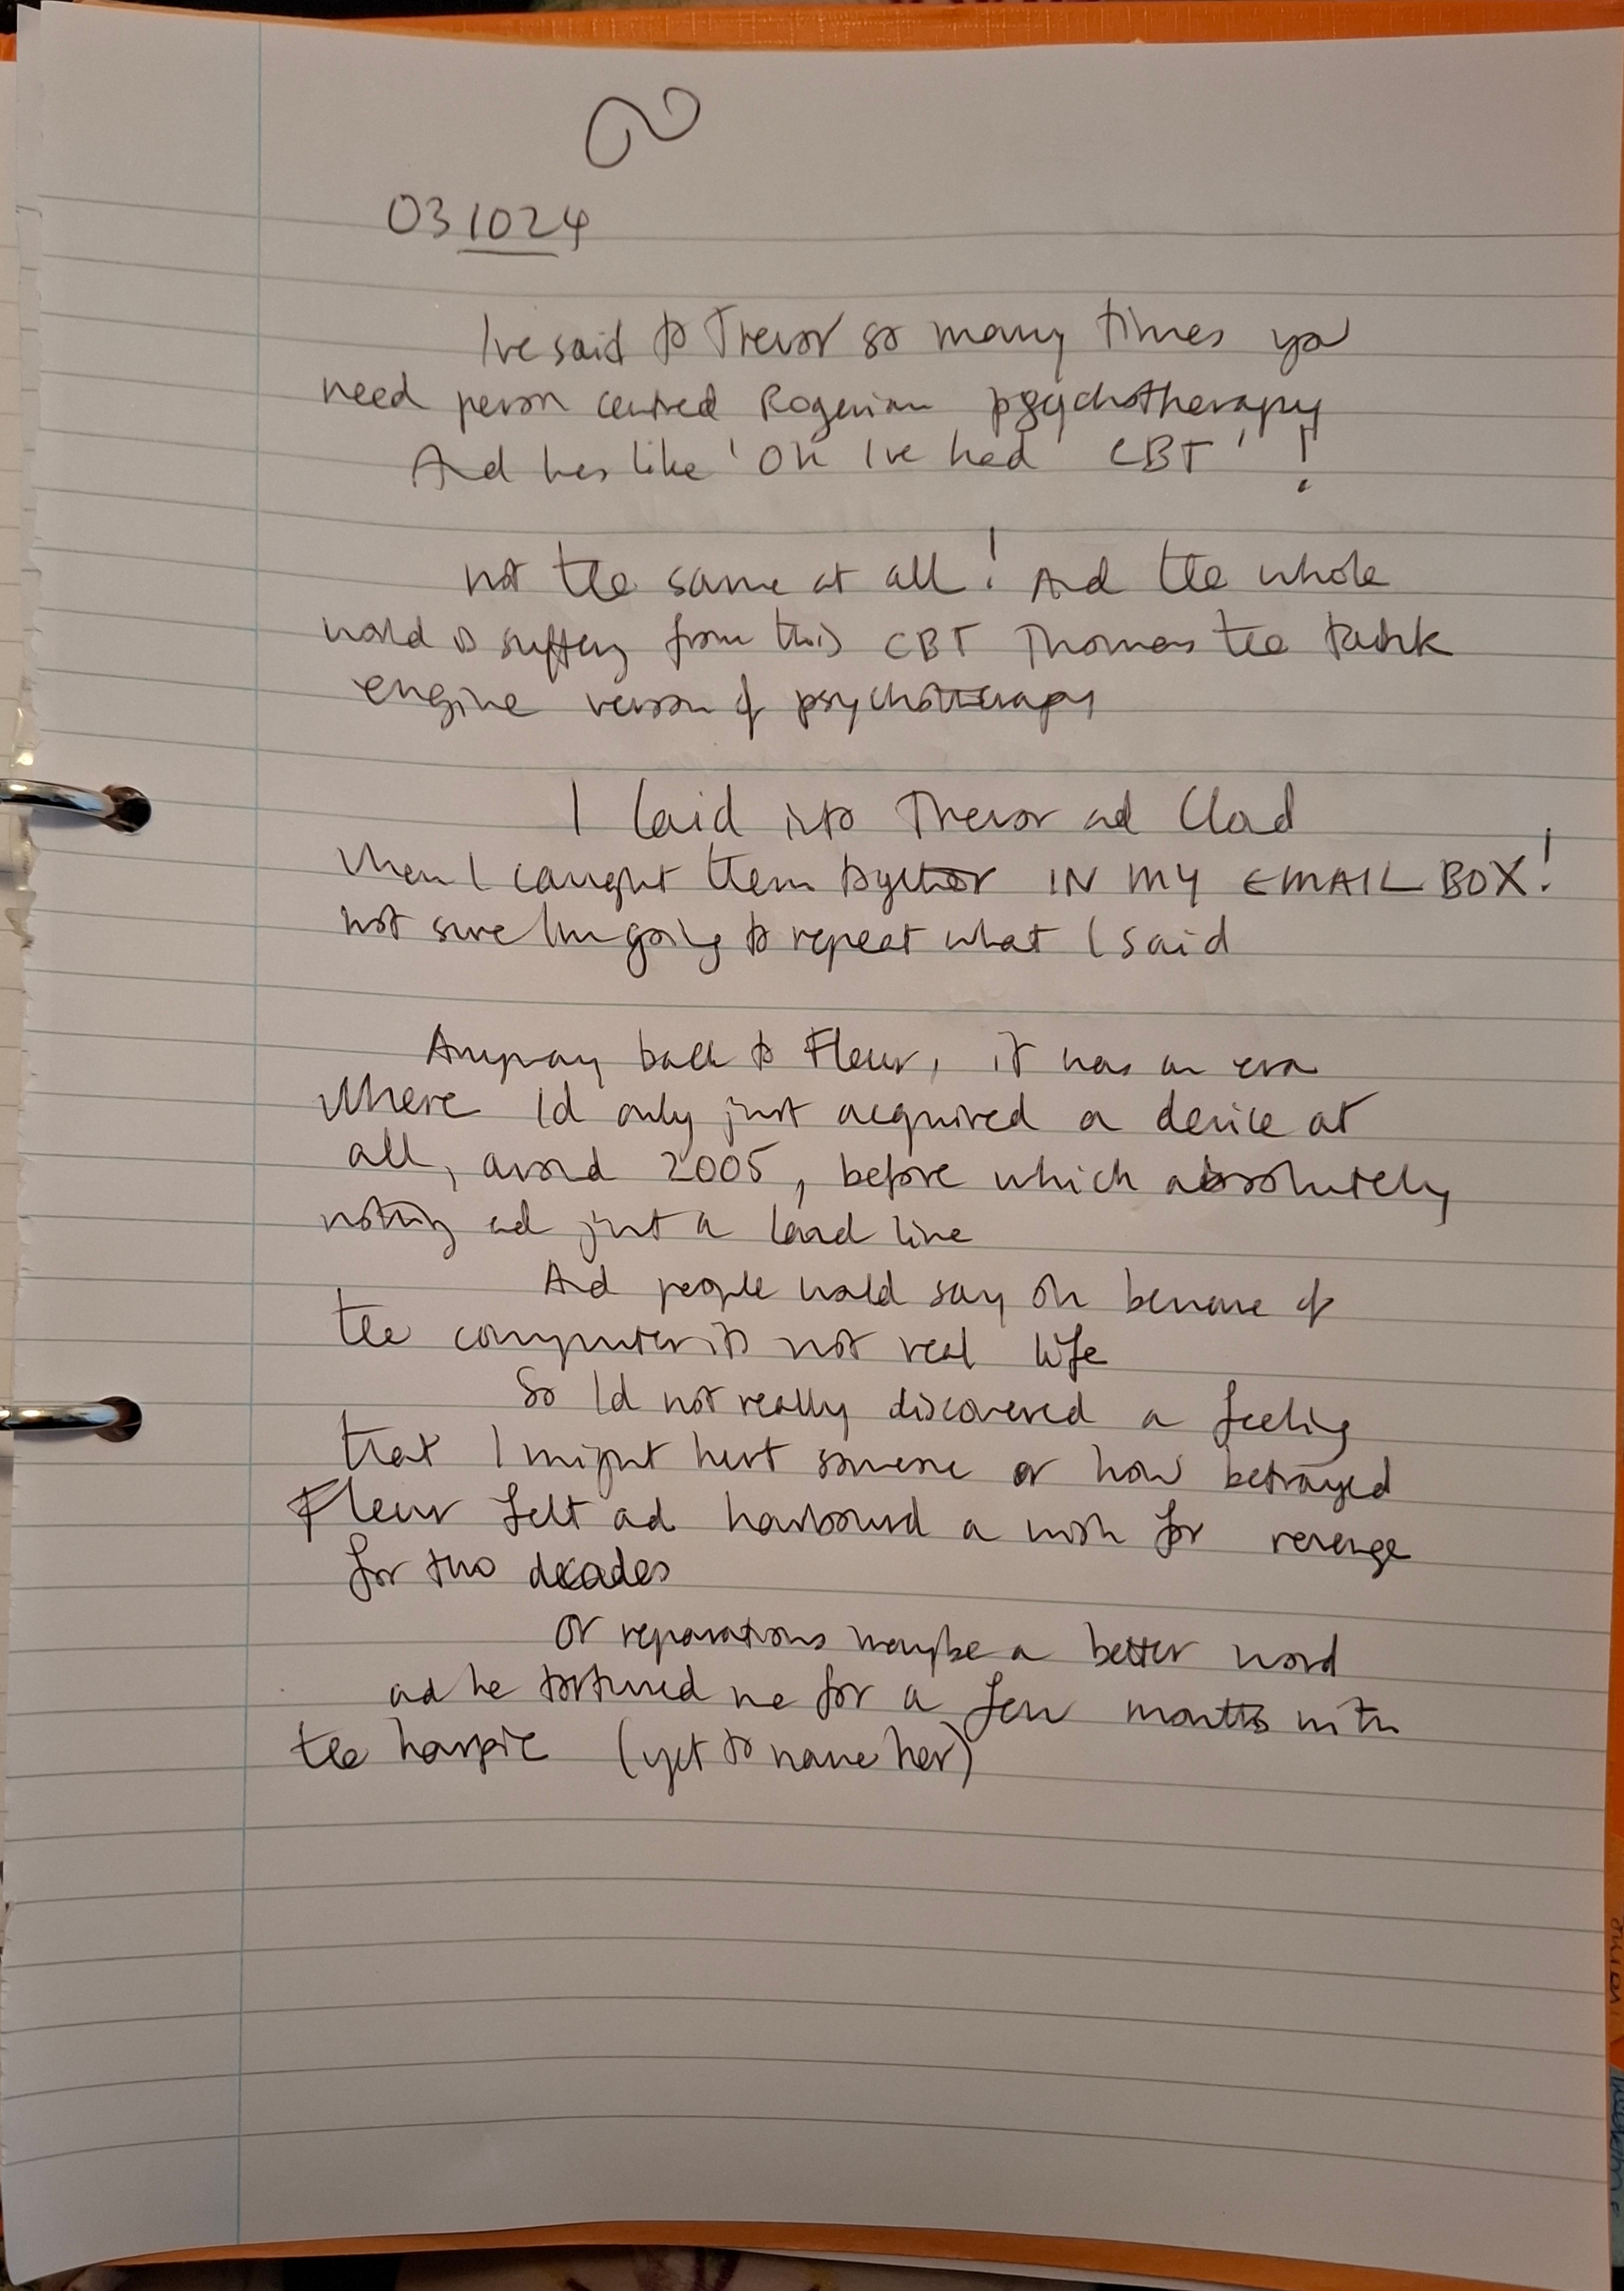 031024
I've said to Trevor so many times you
need person centred Rogerian psychotherapy
And hes like 'Oh I've had CBT' !
not the same at all! And the whole
world is suffering from this CBT Thomas the tank
engine version of psychotherapy
I laid into Trevor and Cloud
When I caught them together IN MY EMAIL BOX!
not sure Im going to repeat what I said
Anyway back to Fleur, it was an era
Where Id only just acquired a device at
all, around 2005, before which absolutely
nothing and just a land line
And people would say oh beware of
the computer its not real life
So Id not really discovered a feeling
that I might hurt someone or how betrayed
Fleur felt and harboured a wish for revenge
for two decades
Or reparations maybe a better word
and he tortured me for a few months with
the harpie (yet to name her)